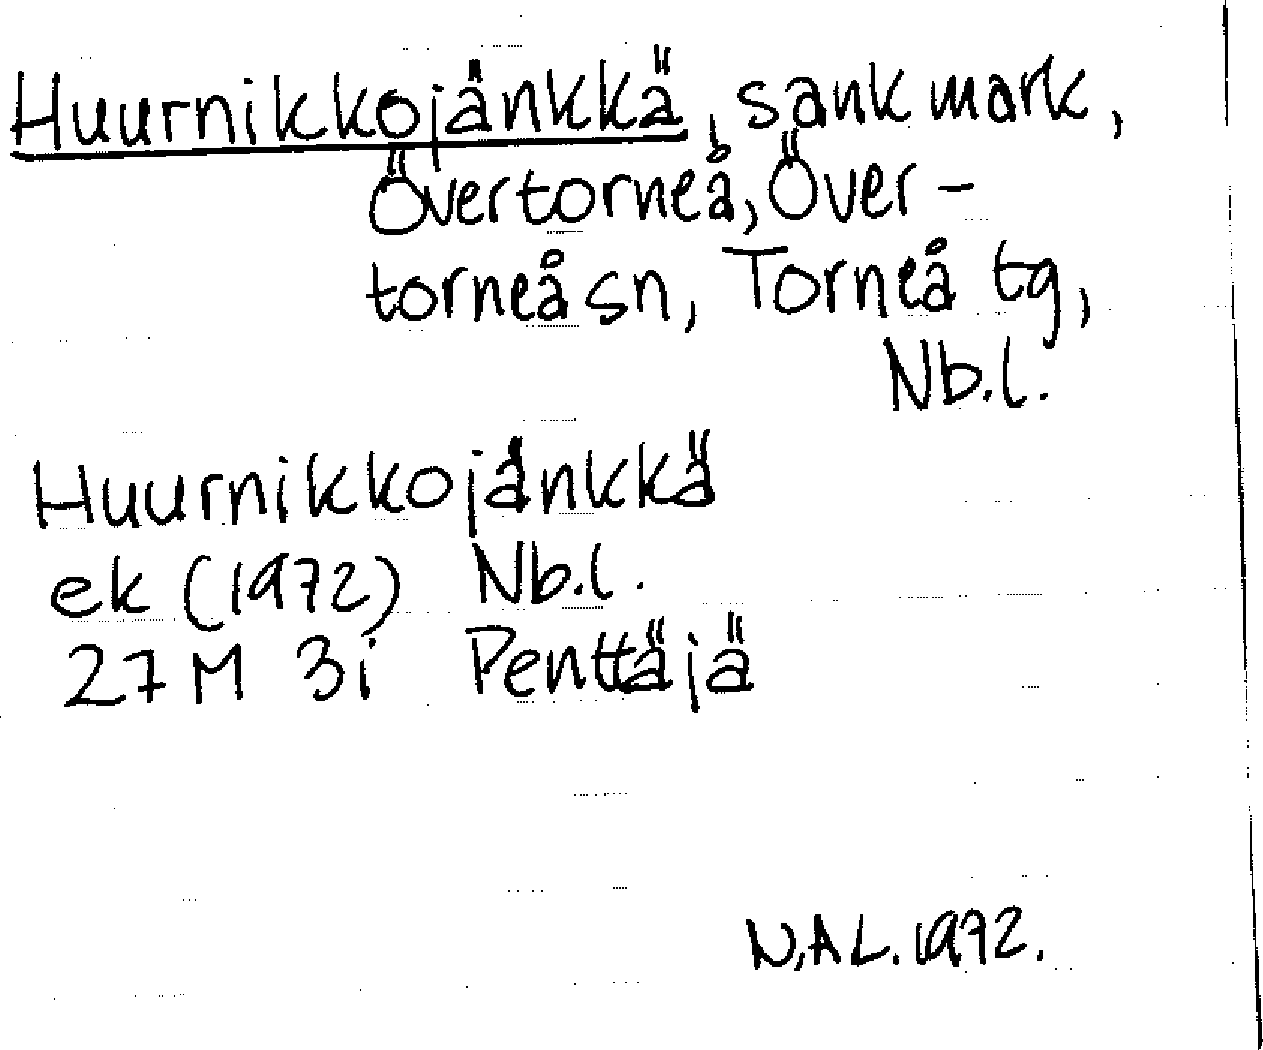 Huurnikkojänkkä, sank mark,
Övertorneå, Över-
torneå sn, Torneå tg,
Nb.l.
Huurnikkojänkkä
ek (1972) Nb.l.
27 M 3i Penttäjä
N,AL.1972.